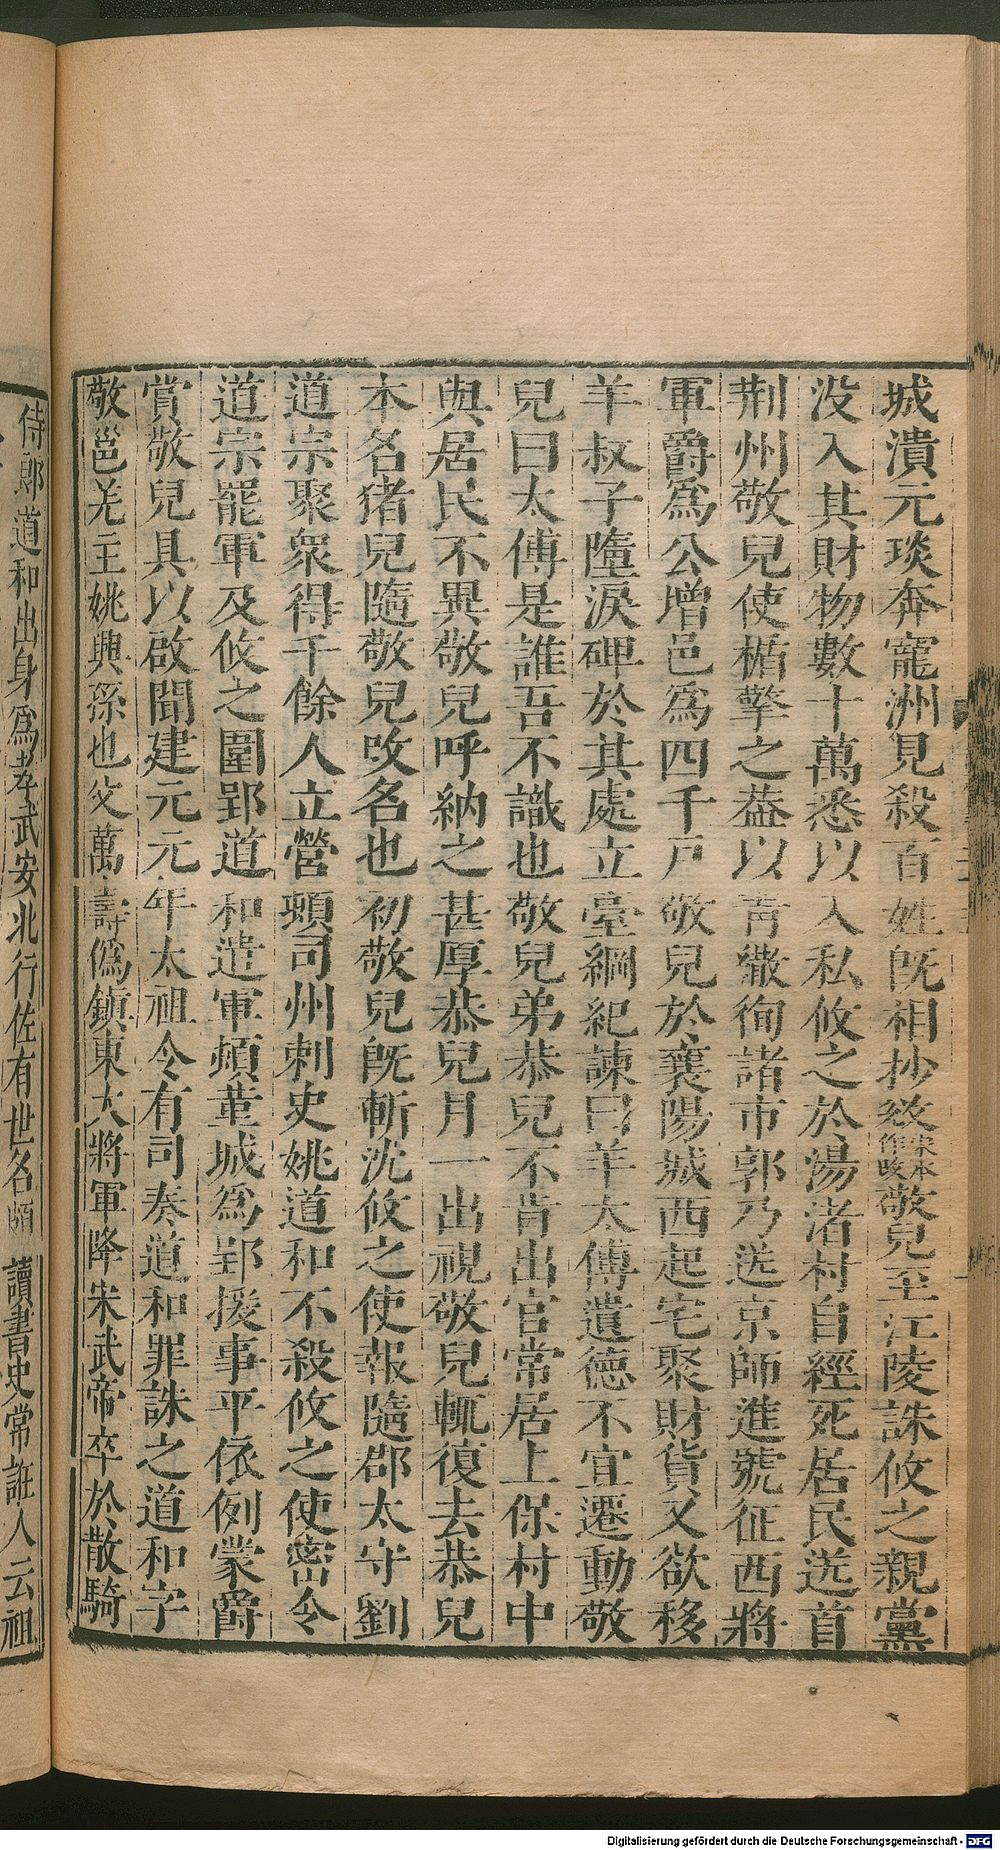 城潰元琰奔寵洲見殺百姓旣相抄敓宋本作敚敬兒至江陵誅攸之親黨
没入其財物數十萬悉以入私攸之於湯渚村自經死居民送首
荆州敬兒使楯擎之葢以靑繖徇諸市郭乃送京師進號征西將
軍爵爲公增邑爲四千戸敬兒於襄陽城西起宅聚財貨又欲移
羊叔子墮淚碑於其處立臺綱紀諫曰羊太傅遺德不宜遷動敬
兒曰太傅是誰吾不識也敬兒弟恭兒不肯出官常居上保村中
與居民不異敬兒呼納之甚厚恭兒月一出視敬兒輒復去恭兒
本名猪兒隨敬兒改名也初敬兒旣斬沈攸之使報隨郡太守劉
道宗聚衆得千餘人立營頓司州刺史姚道和不殺攸之使密令
道宗罷軍及攸之圍郢道和遣軍頓菫城爲郢援事平依例蒙爵
賞敬兒具以啟聞建元元年太祖令有司奏道和罪誅之道和字
敬邕羌主姚興孫也父萬壽僞鎭東大將軍降宋武帝卒於散騎
侍郎道和出身爲孝武安北行佐有世名頗讀書史常誑人云祖
Digitalisierung gefördert durch die Deutsche Forschungsgemeinschaft - DFG